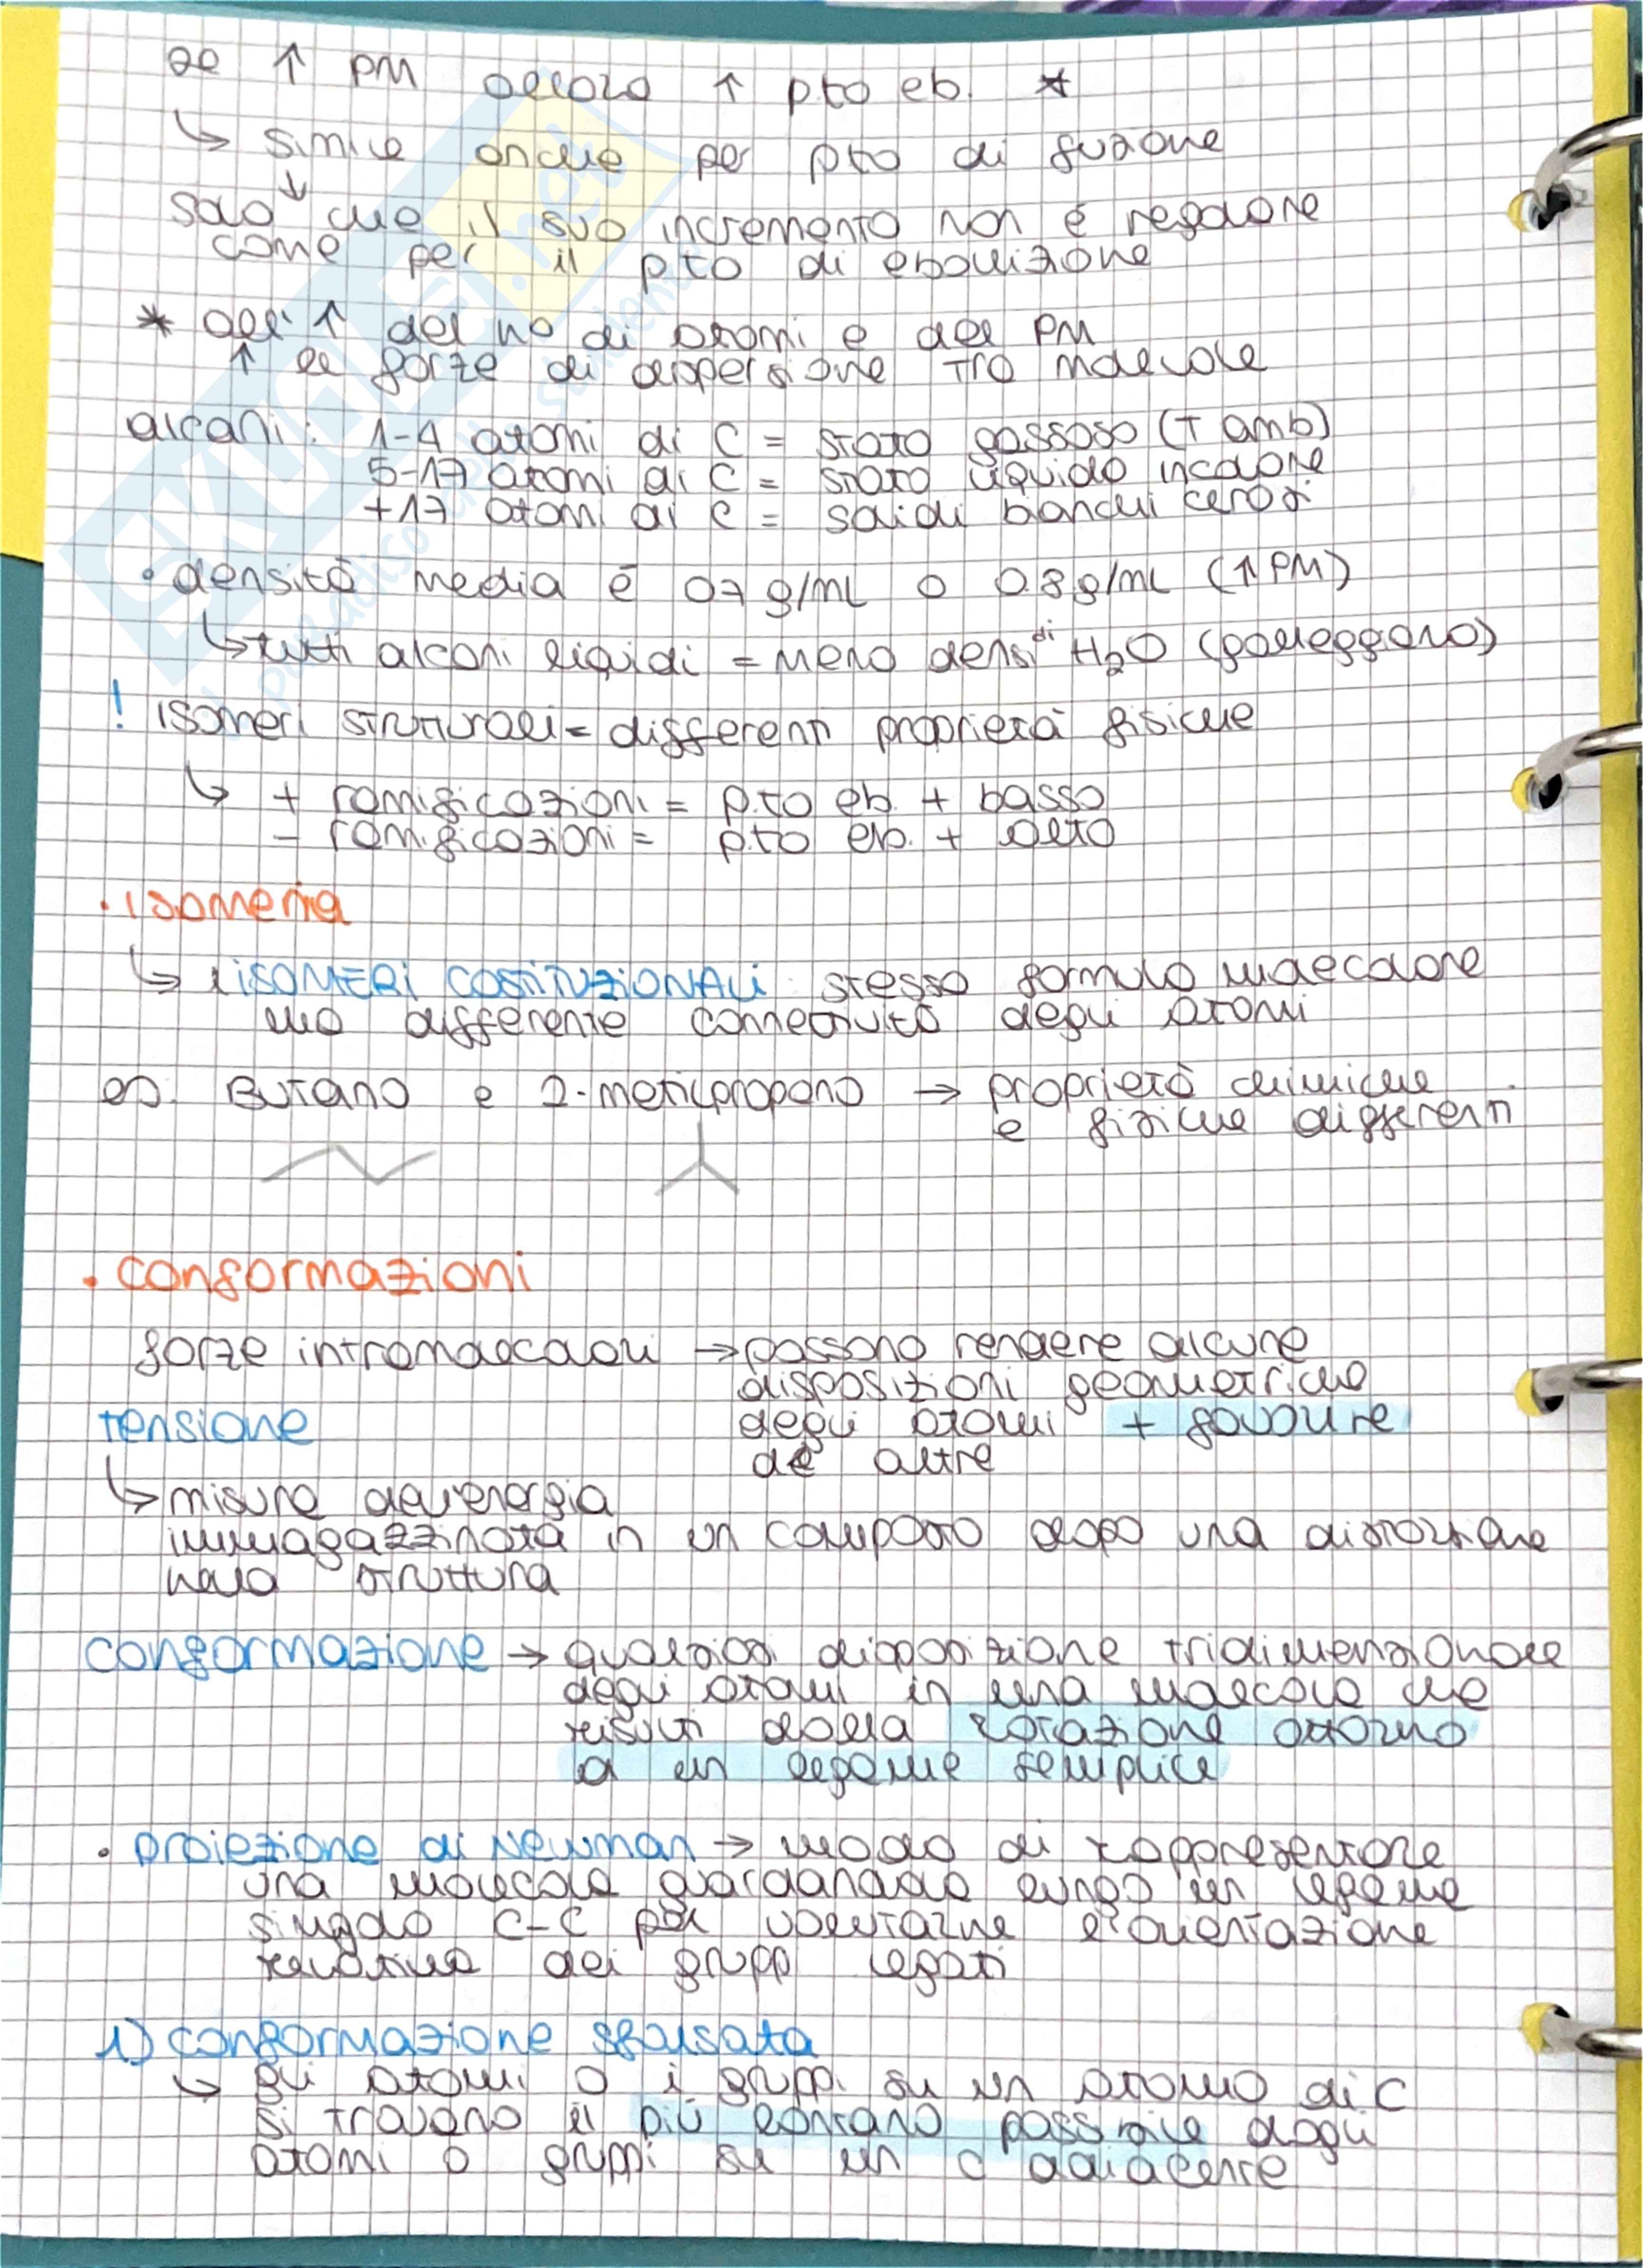 se ↑ PM allora ↑ pto eb. *
↳ simile anche per pto di fusione
↓
solo che il suo incremento non è regolare
come per il pto di ebollizione
* all'↑ del no di atomi e del PM
↑ le forze di dispersione tra molecole
alcani: 1-4 atomi di C = stato gassoso (T amb)
5-17 atomi di C = stato liquido incolore
+17 atomi di C = solidi bianchi cerosi
• densità media è 0.7 g/mL o 0.8 g/mL (↑PM)
↳ tutti alcani liquidi = meno densi di H2O (galleggiano)
! isomeri strutturali = differenti proprietà fisiche
↳ + ramificazioni = p.to eb. + basso
- ramificazioni = p.to eb. + alto
• isomeria
↳ ISOMERI COSTITUZIONALI: stessa formula molecolare
ma differente connettività degli atomi
es. Butano e 2-metilpropano → proprietà chimiche
e fisiche differenti
• conformazioni
forze intramolecolari → possono rendere alcune
disposizioni geometriche
tensione
degli atomi + favorite
de altre
↳ misura dell'energia
immagazzinata in un composto dopo una distorsione
nella struttura
conformazione → qualsiasi disposizione tridimensionale
degli atomi in una molecola che
risulti dalla rotazione attorno
a un legame semplice
• proiezione di Newman → modo di rappresentare
una molecola guardandola lungo un legame
singolo C-C per valutarne l'orientazione
relativa dei gruppi legati
1) conformazione sfalsata
↳ gli atomi o i gruppi su un atomo di C
si trovano il più lontano possibile dagli
atomi o gruppi su un C adiacente
SKUOLA.net